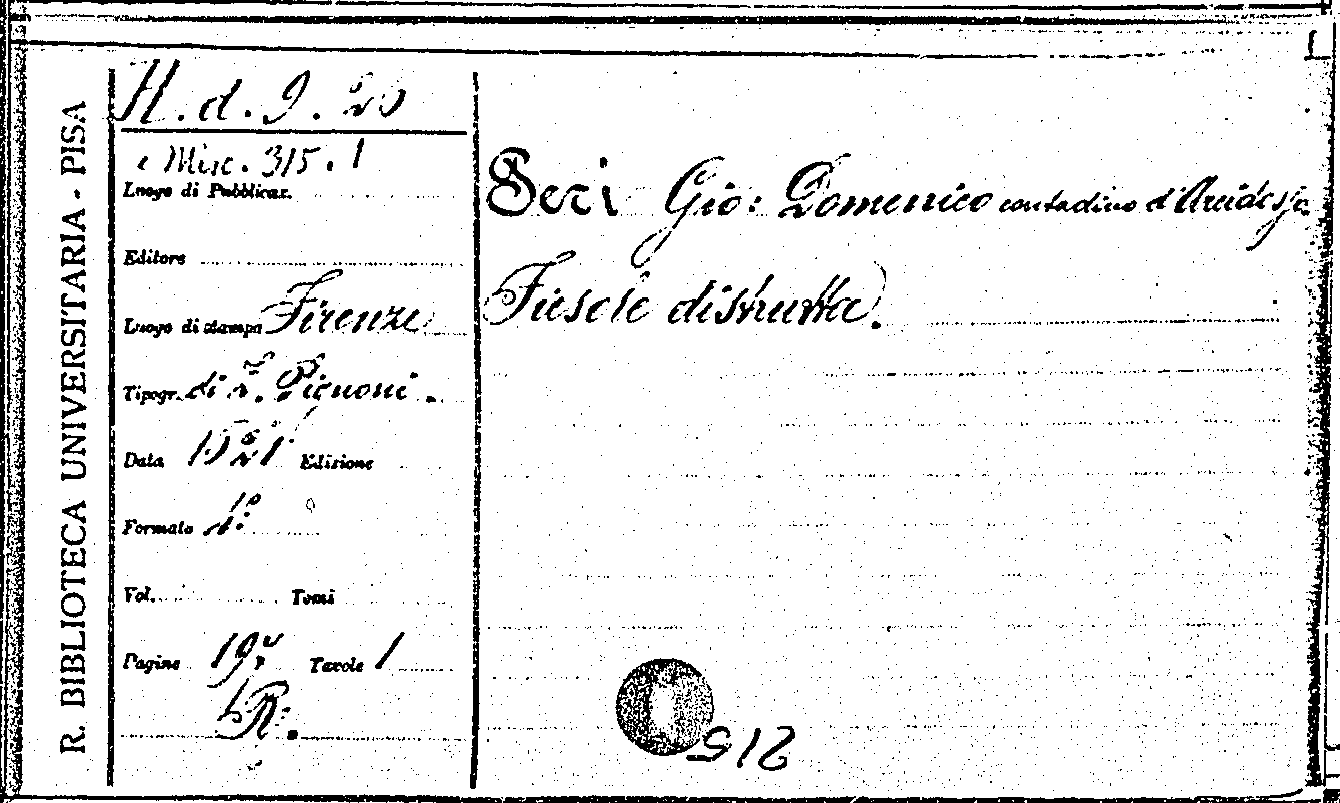 R. BIBLIOTECA UNIVERSITARIA - PISA
H. d. 9. 26
e Misc. 315. 1
Luogo di Pubblicaz.
Editore
Luogo di stampa Firenze
Tipogr. di Z. Pignoni.
Data Edizione
Formato 4º
Vol. Tomi
Pagine 197 Tavole 1
Peri Gio: Domenico contadino d'Arcidosso
Fiesole distrutta.
512